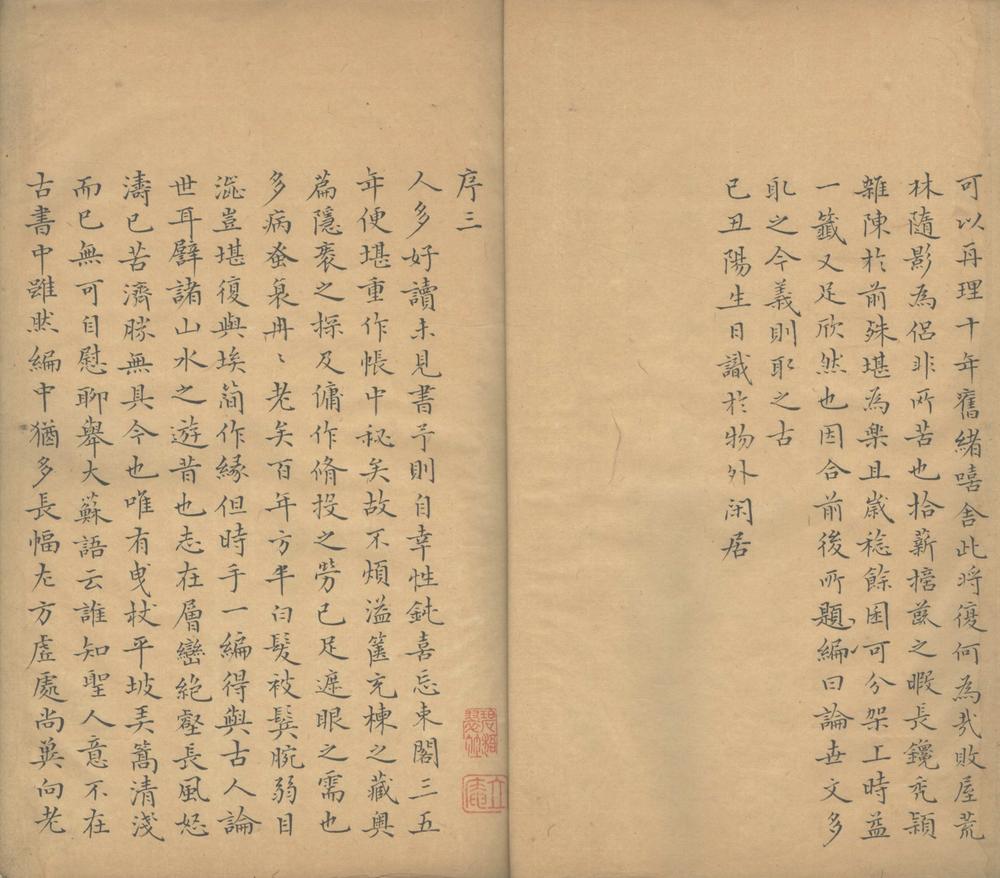 可以再理十年舊緒嘻舍此將復何為哉敗屋荒
林隨影為侶非所苦也拾薪擔蔬之暇長鑱禿穎
雜陳於前殊堪為樂且歲稔餘囷可分架上時益
一籤又足欣然也因合前後所題編曰論世文多
𠬧之今義則取之古
已丑陽生日識於物外閑居
序三
人多好讀未見書予則自幸性鈍喜忘東閣三五
年便堪重作帳中秘矣故不煩溢篋充棟之藏與
篇隱袠之探及傭作脩投之勞已足遮眼之需也
多病蚤衰冉〻老矣百年方半白髮被鬂腕弱目
澁豈堪復與埃簡作緣但時手一編得與古人論
世耳譬諸山水之遊昔也志在層巒絶壑長風怒
濤已苦濟勝無具今也唯有曳杖平坡弄篙清淺
而已無可自慰聊舉大蘇語云誰知聖人意不在
古書中雖然編中猶多長幅左方虛處尚兾向老